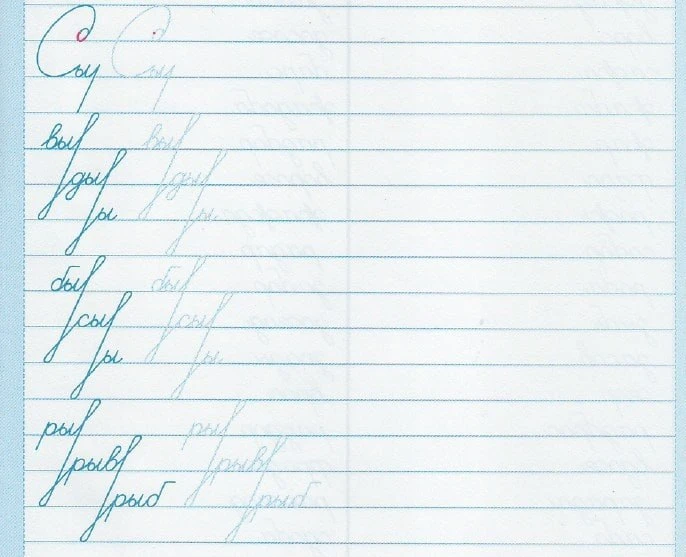 Сы Сы
вы вы
ды ды
ы ы
бы бы
сы сы
ы ы
ры ры
рыв рыв
рыб рыб